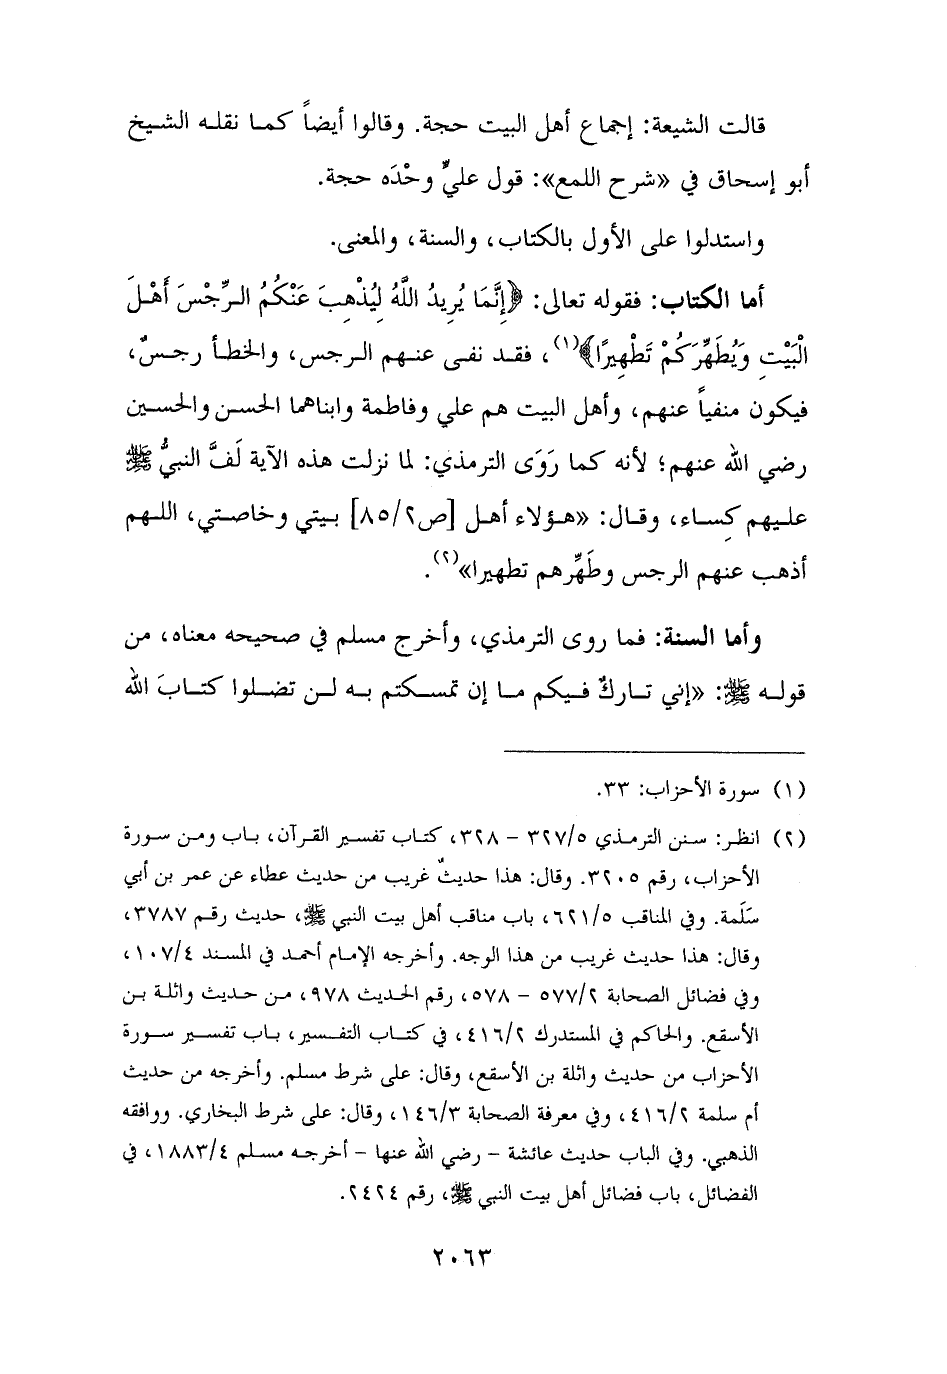 قالت الشيعة: إجماع أهل البيت حجة. وقالوا أيضاً كما نقله الشيخ
أبو إسحاق في «شرح اللمع»: قول عليٌّ وحْدَه حجة.
واستدلوا على الأول بالكتاب، والسنة، والمعنى.
أما الكتاب: فقوله تعالى: ﴿إِنَّمَا يُرِيدُ اللَّهُ لِيُذْهِبَ عَنْكُمُ الرِّجْسَ أَهْلَ
الْبَيْتِ وَيُطَهِّرَكُمْ تَطْهِيرًا﴾(١)، فقد نفى عنهم الرجس، والخطأ رجسٌ،
فيكون منفياً عنهم، وأهل البيت هم علي وفاطمة وابناهما الحسن والحسين
رضي الله عنهم؛ لأنه كما رَوَى الترمذي: لما نزلت هذه الآية لَفَّ النبيُّ ﷺ
عليهم كِساء، وقال: «هؤلاء أهل [ص٨٥/٢] بيتي وخاصتي، اللهم
أذهب عنهم الرجس وطَهِّرهم تطهيرا»(٢).
وأما السنة: فما روى الترمذي، وأخرج مسلم في صحيحه معناه، من
قوله ﷺ: «إني تاركٌ فيكم ما إن تمسكتم به لن تضلوا كتابَ الله
(١) سورة الأحزاب: ٣٣.
(٢) انظر: سنن الترمذي ٣٢٧/٥ - ٣٢٨، كتاب تفسير القرآن، باب ومن سورة
الأحزاب، رقم ٣٢٠٥. وقال: هذا حديثٌ غريب من حديث عطاء عن عمر بن أبي
سَلَمة. وفي المناقب ٦٢١/٥، باب مناقب أهل بيت النبي ﷺ، حديث رقم ٣٧٨٧،
وقال: هذا حديث غريب من هذا الوجه. وأخرجه الإمام أحمد في المسند ١٠٧/٤،
وفي فضائل الصحابة ٥٧٧/٢ - ٥٧٨، رقم الحديث ٩٧٨، من حديث واثلة بن
الأسقع. والحاكم في المستدرك ٤١٦/٢، في كتاب التفسير، باب تفسير سورة
الأحزاب من حديث واثلة بن الأسقع، وقال: على شرط مسلم. وأخرجه من حديث
أم سلمة ٤١٦/٢، وفي معرفة الصحابة ١٤٦/٣، وقال: على شرط البخاري. ووافقه
الذهبي. وفي الباب حديث عائشة - رضي الله عنها - أخرجه مسلم ١٨٨٣/٤، في
الفضائل، باب فضائل أهل بيت النبي ﷺ، رقم ٢٤٢٤.
٢٠٦٣